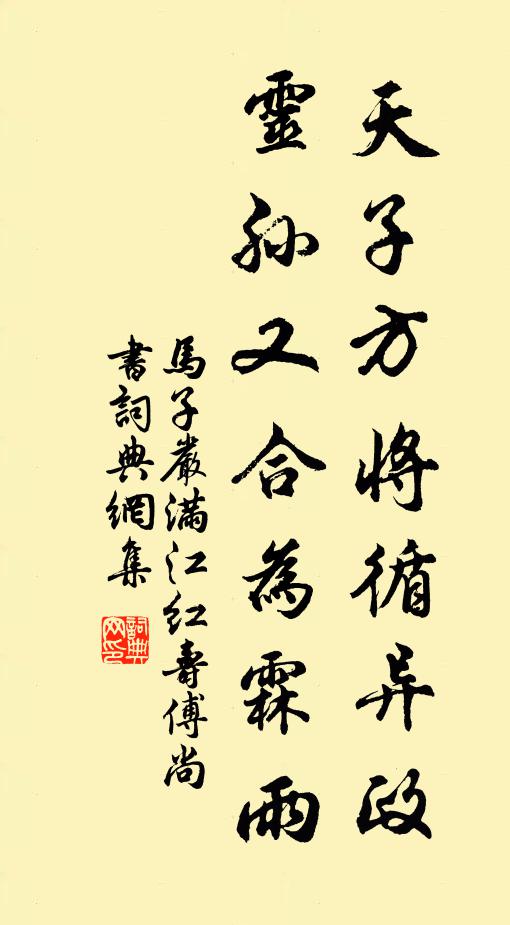 天子方將循异政
靈孙又合為霖雨
馬子嚴滿江红壽傅尚
書詞典網集
詞典
网印